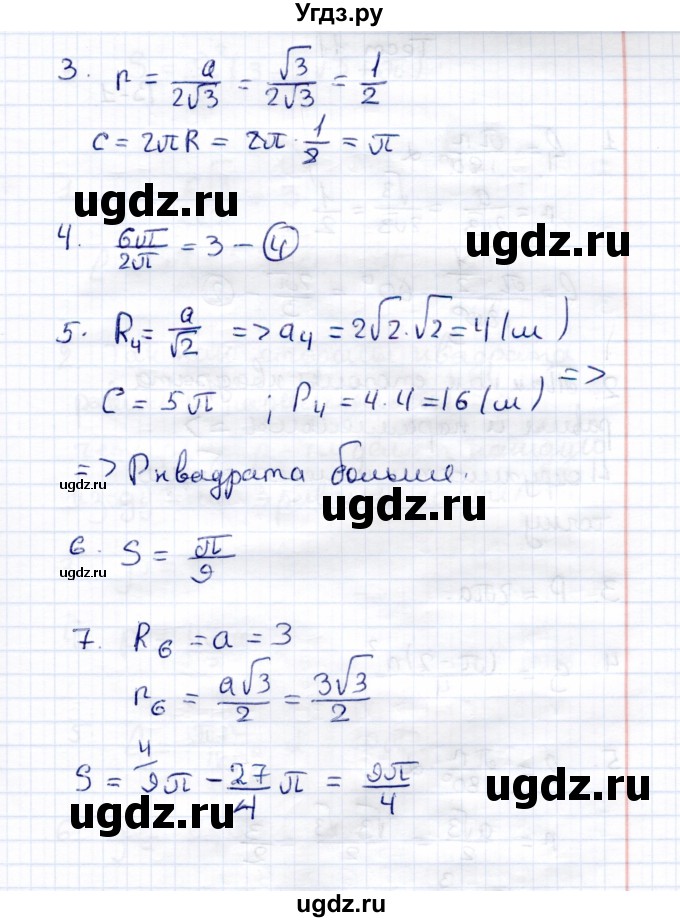 Угдз.ру
3. r = a/2√3 = √3/2√3 = 1/2
C = 2πR = 2π · 1/2 = π
ugdz.ru
4. 6π/2π = 3 – 4
ugdz.ru
5. R₄ = a/√2 => a₄ = 2√2·√2 = 4 (м)
C = 5π ; P₄ = 4·4 = 16 (м) =>
=> P квадрата больше.
ugdz.ru
ugdz.ru
6. S = π/9
ugdz.ru
7. R₆ = a = 3
r₆ = a√3/2 = 3√3/2
S = ⁴⁄9π – 27/4 π = 9π/4
ugdz.ru
ugdz.ru
ugdz.ru